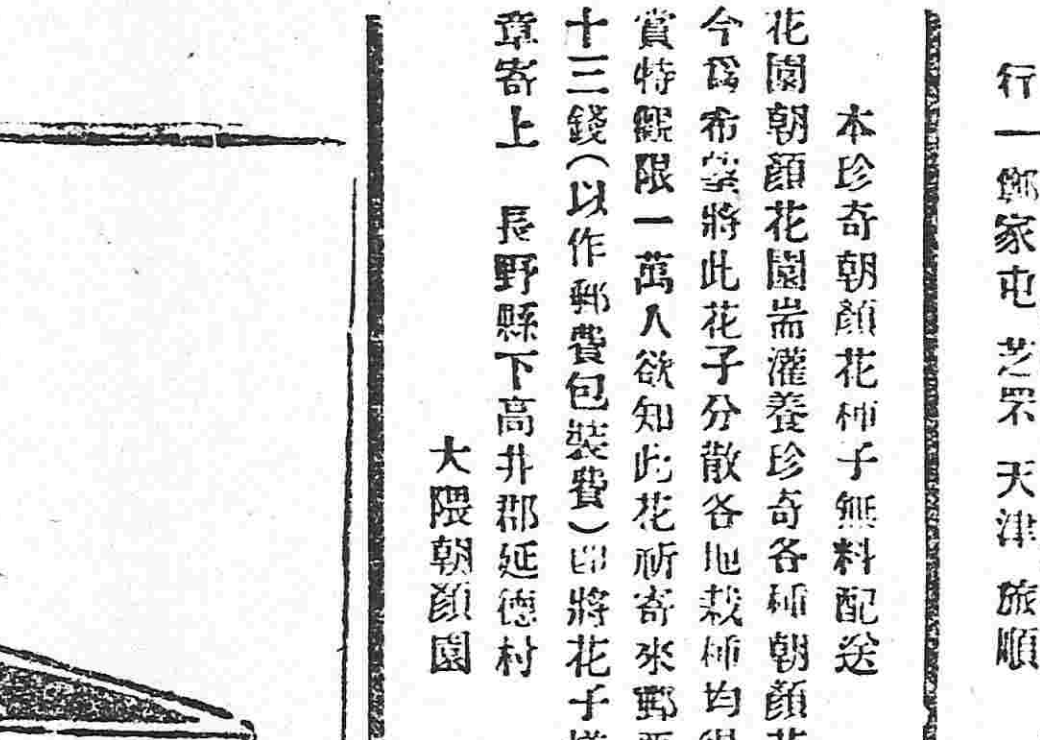 行一鄭家屯 芝罘 天津 旅順
本珍奇朝顏花種子無料配送
花園朝顏花園耑灌養珍奇各種朝顏花
今爲布榮將此花子分散各地栽種均得
賞特僅限一萬人欲知此花祈寄來郵票
十三錢(以作郵費包裝費)即將花子
章寄上 長野縣下高井郡延德村
大隈朝顏園